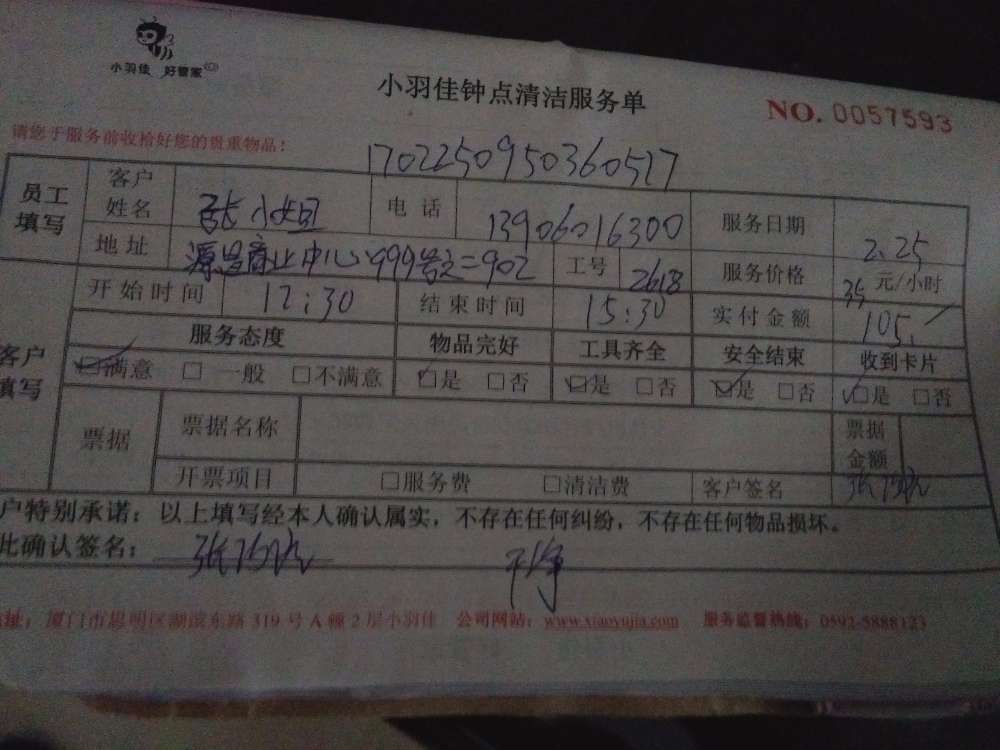 小羽佳 好管家
小羽佳钟点清洁服务单
NO. 0057593
请您于服务前收拾好您的贵重物品!
1702250950360517
员工填写 客户姓名 张小姐 电话 13906016300 服务日期 2.25
地址 源昌商业中心 999号之二902 工号 2618 服务价格 35元/小时
开始时间 12:30 结束时间 15:30 实付金额 105.
客户填写 服务态度 物品完好 工具齐全 安全结束 收到卡片
满意 □ 一般 □不满意 □是 □否 □是 □否 □是 □否 □是 □否
票据 票据名称 票据金额
开票项目 □服务费 □清洁费 客户签名
户特别承诺:以上填写经本人确认属实,不存在任何纠纷,不存在任何物品损坏。
此确认签名: 干净
址:厦门市思明区湖滨东路319号A幢2层小羽佳 公司网站:www.xiaoyujia.com 服务监督热线:0592-5888123